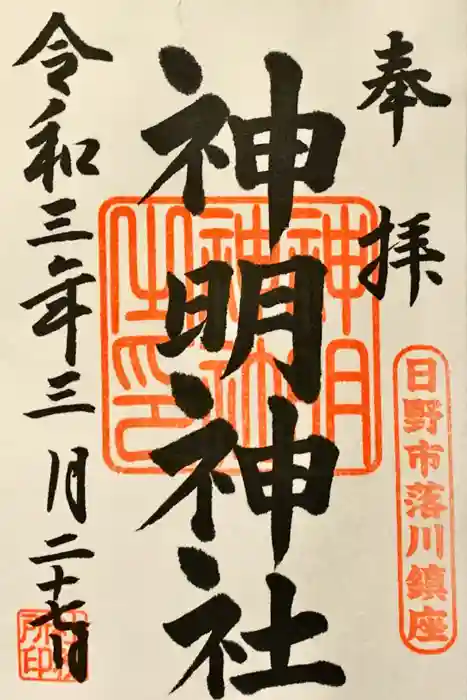 奉拝
日野市落川鎮座
神明神社
神明神社之印
令和三年三月二十七日